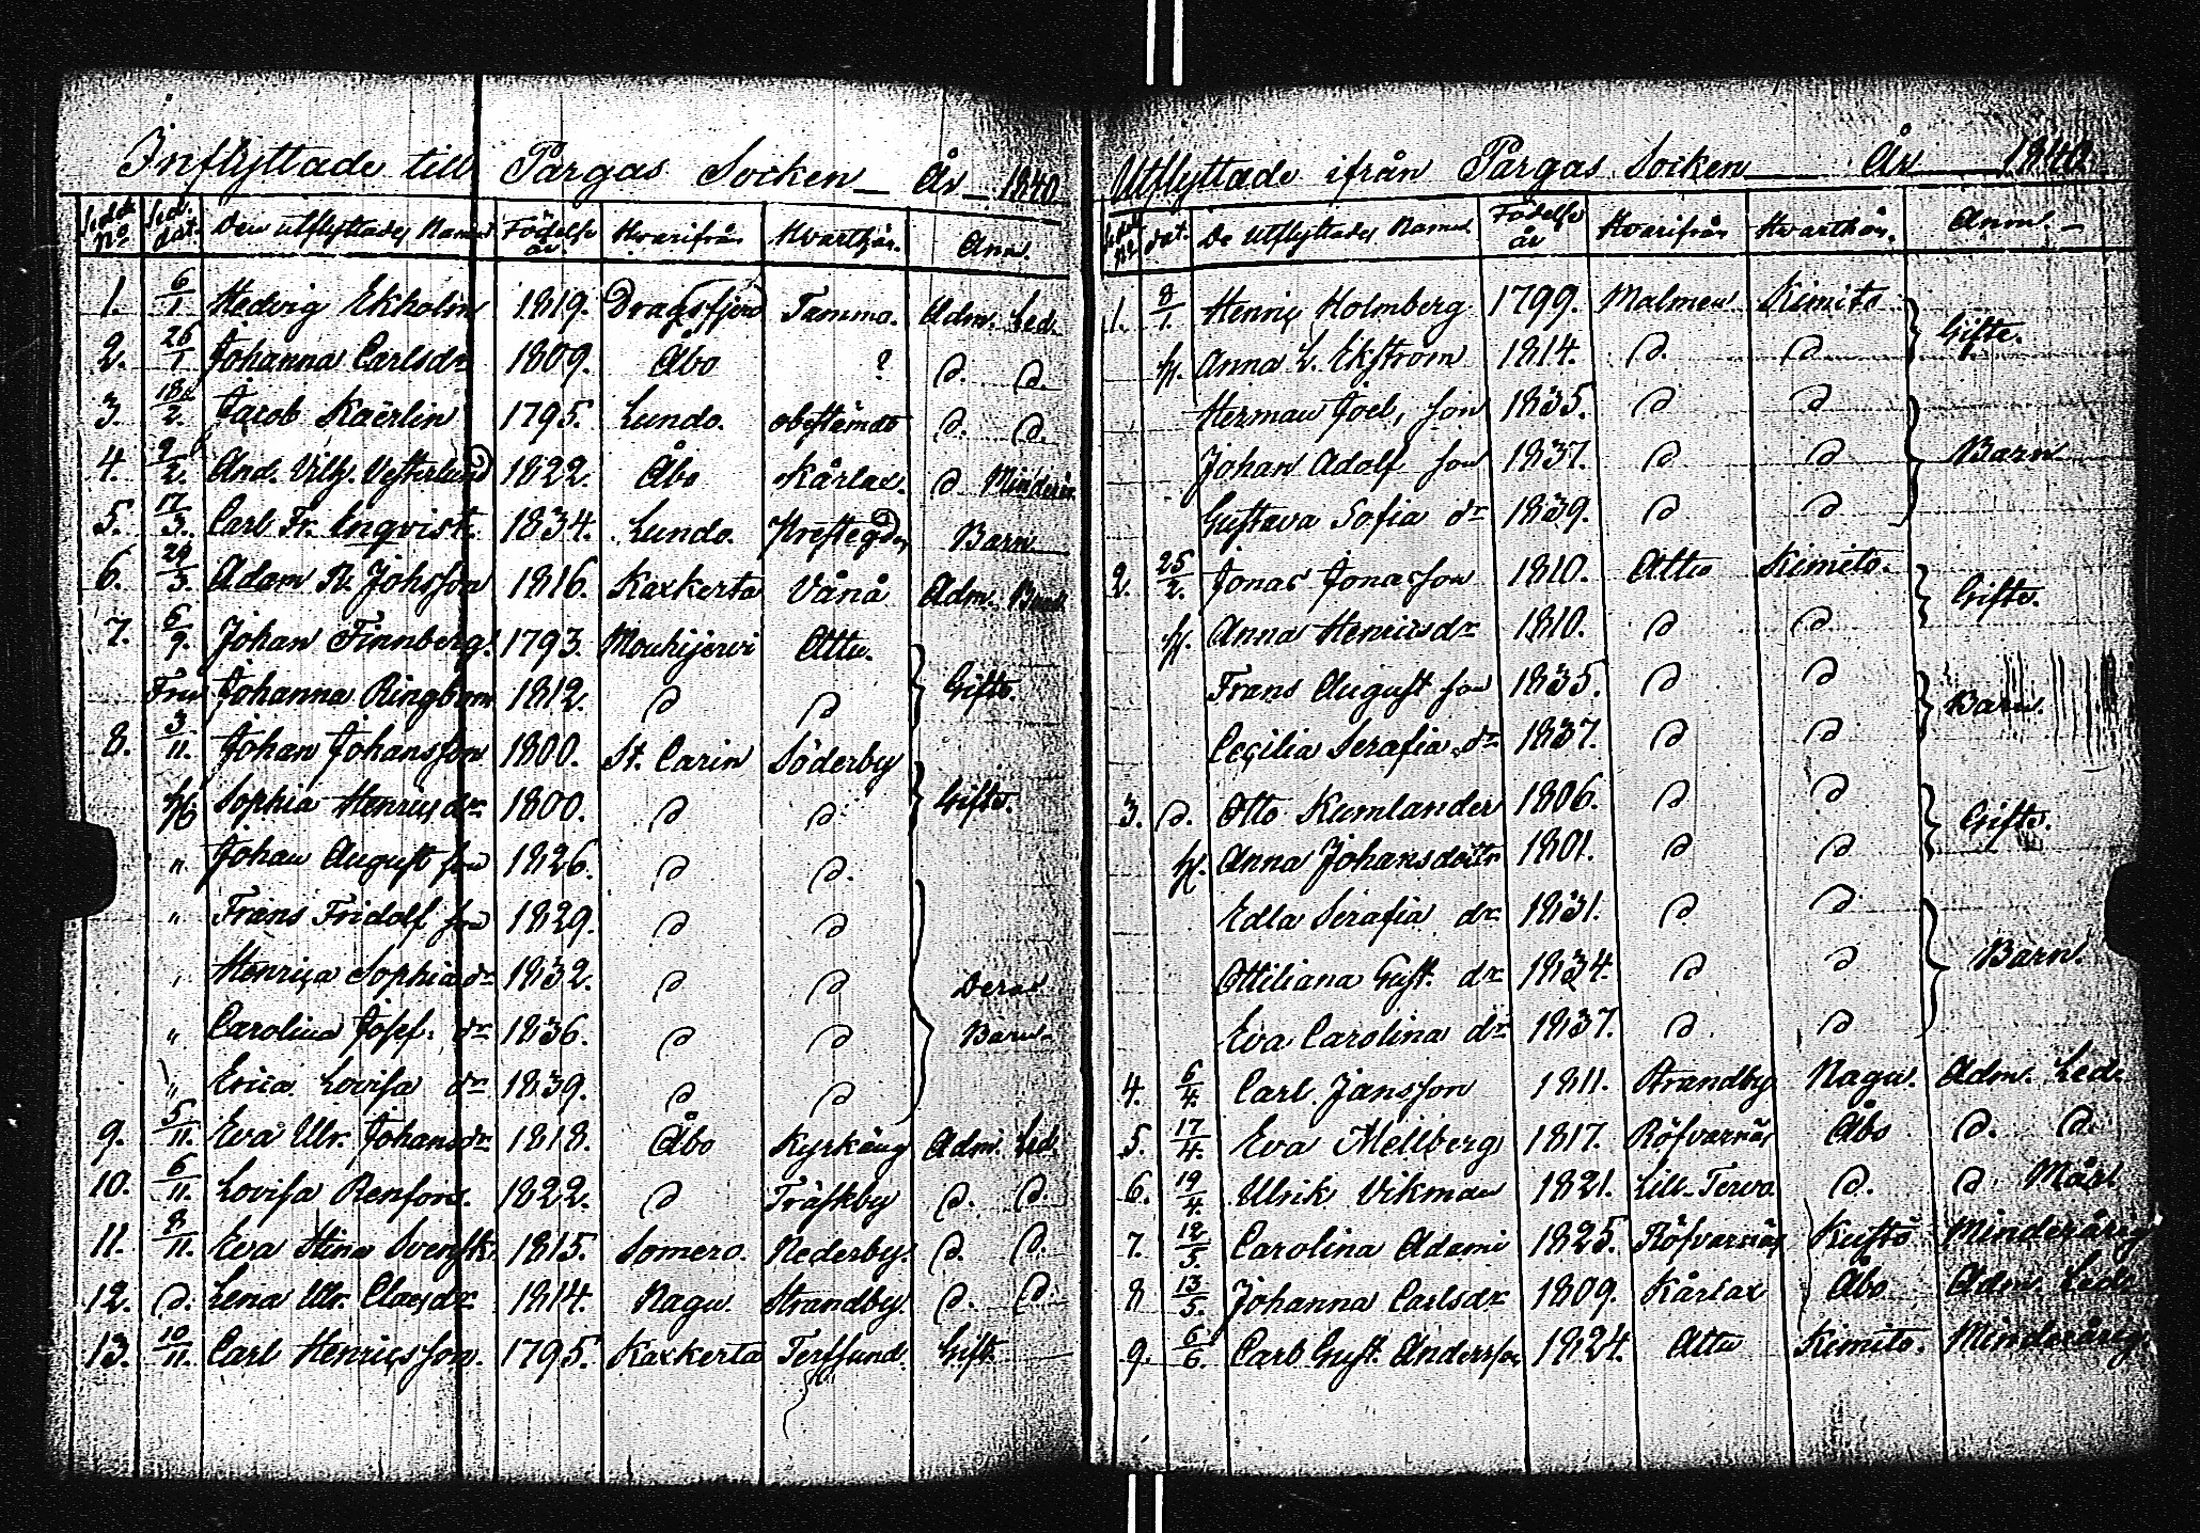 Inflyttade till Pargas Socken År 1840
Sedd. No Sed. dat. Den utflyttades Namn Födelse år. Hvarifrån Hvarthän. Anm.
1. 6/1 Hedvig Ekholm 1819. Dragsfjerd Tammo. Adm. Led.
2. 26/1 Johanna Carlsdr 1809. Åbo ? d. d.
3. 18/2. Jacob Kaërlin 1795. Lundo. obestämdt d. d.
4. 2/2. And. Vilh. Vesterlund 1822. Åbo Kårlax. d Minderår.
5. 17/3. Carl Fr. Enqvist. 1834. Lundo. Prestegden Barn
6. 29/3. Adam R. Johsson 1816. Kaxkerta Vånå Adm.
7. 6/9. Johan Finnberg 1793. Mouhijervi Attu.
Fru Johanna Ringbom 1812. d d Gifte.
8. 3/11. Johan Johansson 1800. St. Carin Söderby
H. Sophia Henricsdr 1800. d d Gifte.
" Johan August son 1826. d d.
" Frans Fridolf son 1829. d d
" Henrica Sophia dr 1832. d d Deras
" Carolina Josef. dr 1836. d d Barn
" Erica Lovisa dr 1839. d d
9. 5/11. Eva Ulr. Johansdr 1818. Åbo Kyrkäng Adm. Led.
10. 6/11. Lovisa Renfors. 1822. d Träskby d. d.
11. 8/11. Eva Stina Svensk. 1815. Somero. Nederby. d. d.
12. d. Lena Ulr. Claesdr. 1814. Nagu. Strandby. d. d.
13. 10/11. Carl Henricsson. 1795. Kaxkerta Terfsund. Gift.
Utflyttade ifrån Pargas Socken År 1840
Sedd. No dat. De Utflyttades Namn Födelse år Hvarifrån Hvarthän. Anm.
1. 8/1. Henric Holmberg 1799. Malmen Kimito
H. Anna L. Ekström 1814. d. d Gifte.
Herman Joel, son 1835. d d
Johan Adolf son 1837. d d Barn
Gustava Sofia dr 1839. d d
2. 25/2. Jonas Jonasson 1810. Attu Kimito.
H. Anna Henricsdr 1810. d d. Gifte.
Frans August son 1835. d d
Cecilia Serafia dr 1837. d d Barn.
3. d. Otto Kumlander 1806. d d
H. Anna Johansdotter 1801. d d Gifte.
Edla Serafia dr. 1831. d d
Ottiliana Gust. dr 1834. d d Barn.
Eva Carolina dr 1837. d d
4. 6/4. Carl Jansson 1811. Strandby Nagu. Adm. Led.
5. 17/4. Eva Mellberg 1817. Röfvarnäs Åbo d. d.
6. 19/4 Ulrik Vikman 1821. Lill-Tervo d. d.
7. 12/5. Carolina Adami 1825. Röfvarnäs Kustö Minderårig
8 13/5. Johanna Carlsdr 1809. Kårlax Åbo Adm. Led.
9. 6/6. Carl Gust. Andersson 1824. Attu Kimito. Minderårig.